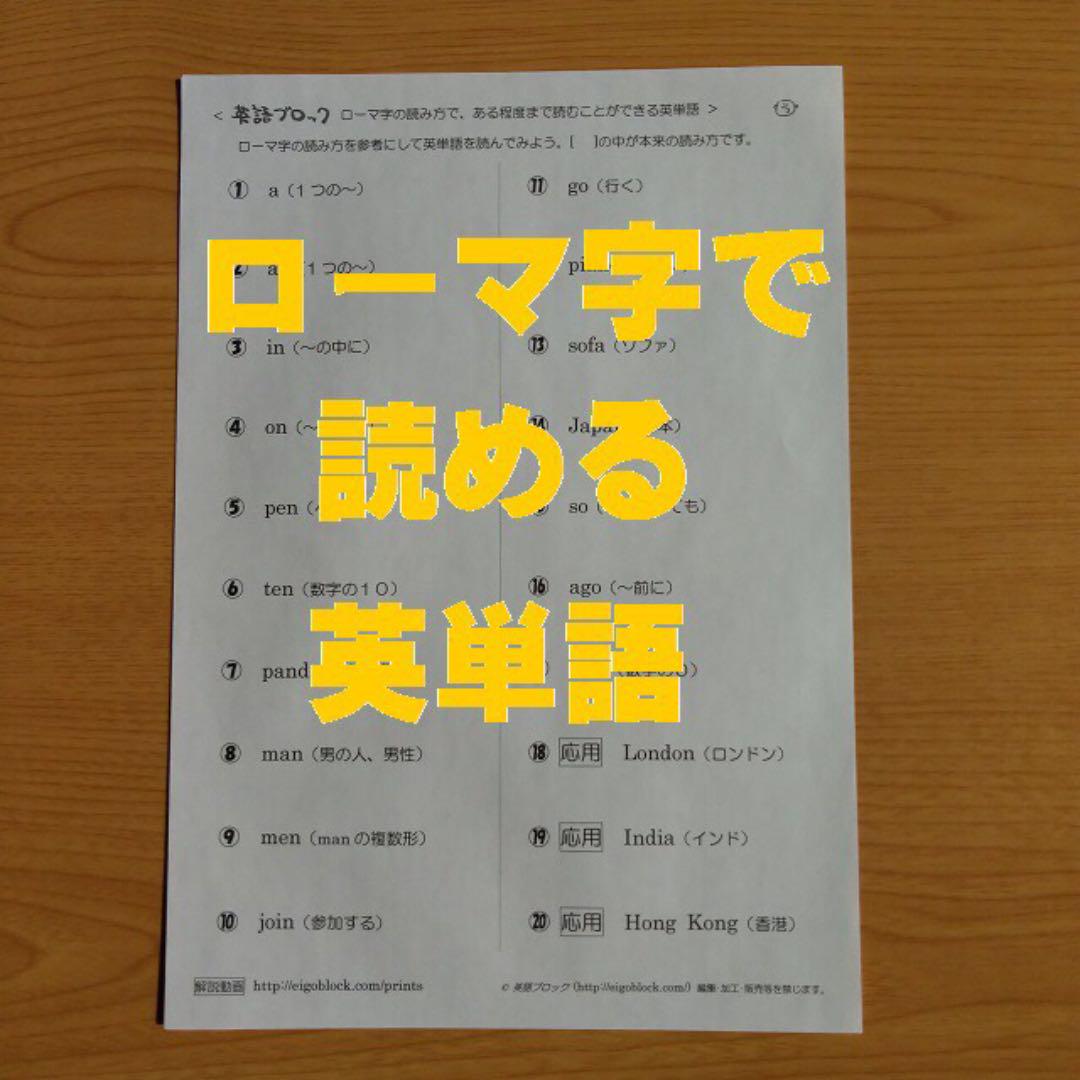 < 英語ブロック ローマ字の読み方で、ある程度まで読むことができる英単語 > ⑤
ローマ字の読み方を参考にして英単語を読んでみよう。[ ]の中が本来の読み方です。
ローマ字で
読める
英単語
① a（１つの～）
１つの～）
③ in（～の中に）
④ on（～
⑤ pen
⑥ ten（数字の１０）
⑦ pand
⑧ man（男の人、男性）
⑨ men（man の複数形）
⑩ join（参加する）
⑪ go（行く）
⑬ sofa（ソファ）
⑭ Japa
so（ ても）
⑯ ago（～前に）
⑱ 応用 London（ロンドン）
⑲ 応用 India（インド）
⑳ 応用 Hong Kong（香港）
解説動画 http://eigoblock.com/prints
© 英語ブロック (http://eigoblock.com/) 編集・加工・販売等を禁じます。